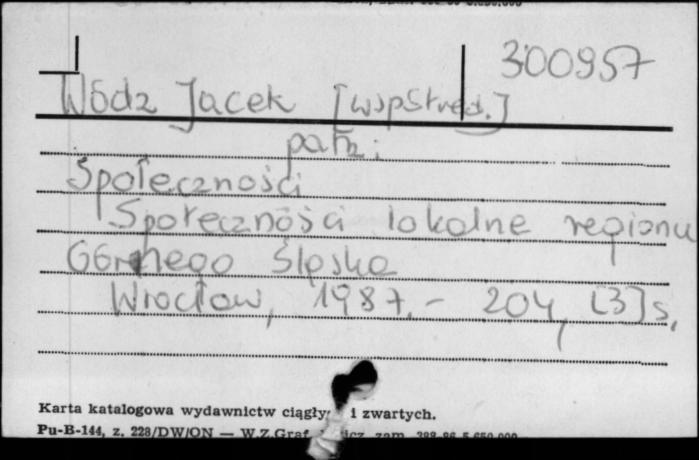 300957
Wódz Jacek [Wspótred.]
patrz:
Społeczności
Społeczności lokalne regionu
Górnego Śląska
Wrocław, 1987. - 204, [3] s.
Karta katalogowa wydawnictw ciągły i zwartych.
Pu-B-144, z. 228/DW/ON — W.Z.Graf. zam.